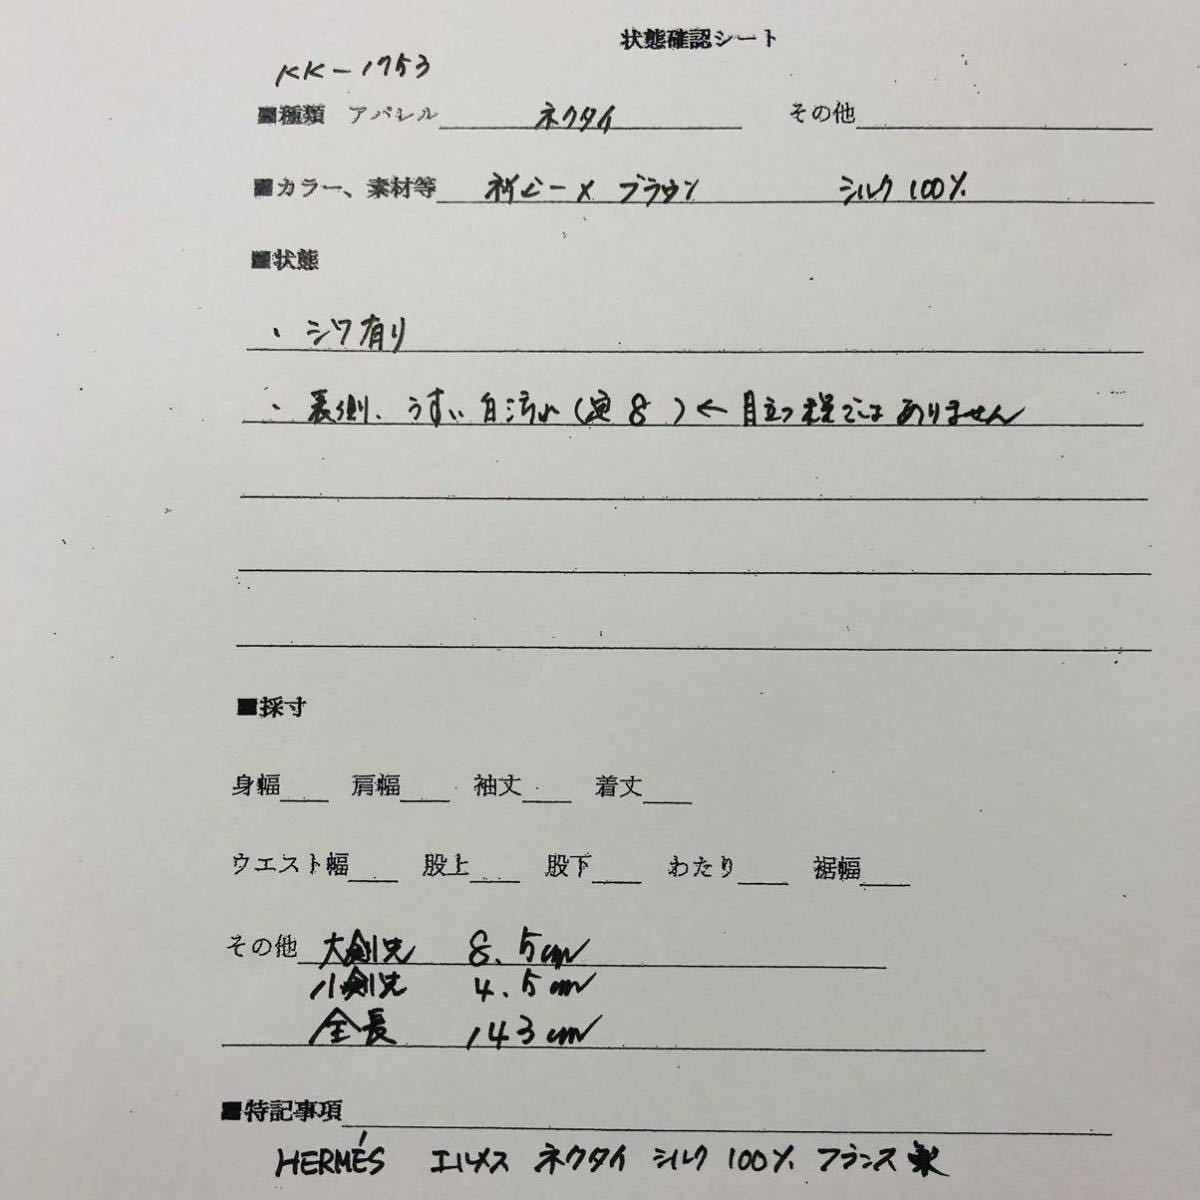 状態確認シート
KK-1753
■種類 アパレル ネクタイ その他
■カラー、素材等 ネイビー×ブラウン シルク100%
■状態
・シワ有り
・表側、うすい白汚れ( 8 )←目立つ程ではありません
■採寸
身幅 肩幅 袖丈 着丈
ウエスト幅 股上 股下 わたり 裾幅
その他 大剣先 8.5cm
小剣先 4.5cm
全長 143cm
■特記事項
HERMÉS エルメス ネクタイ シルク100% フランス